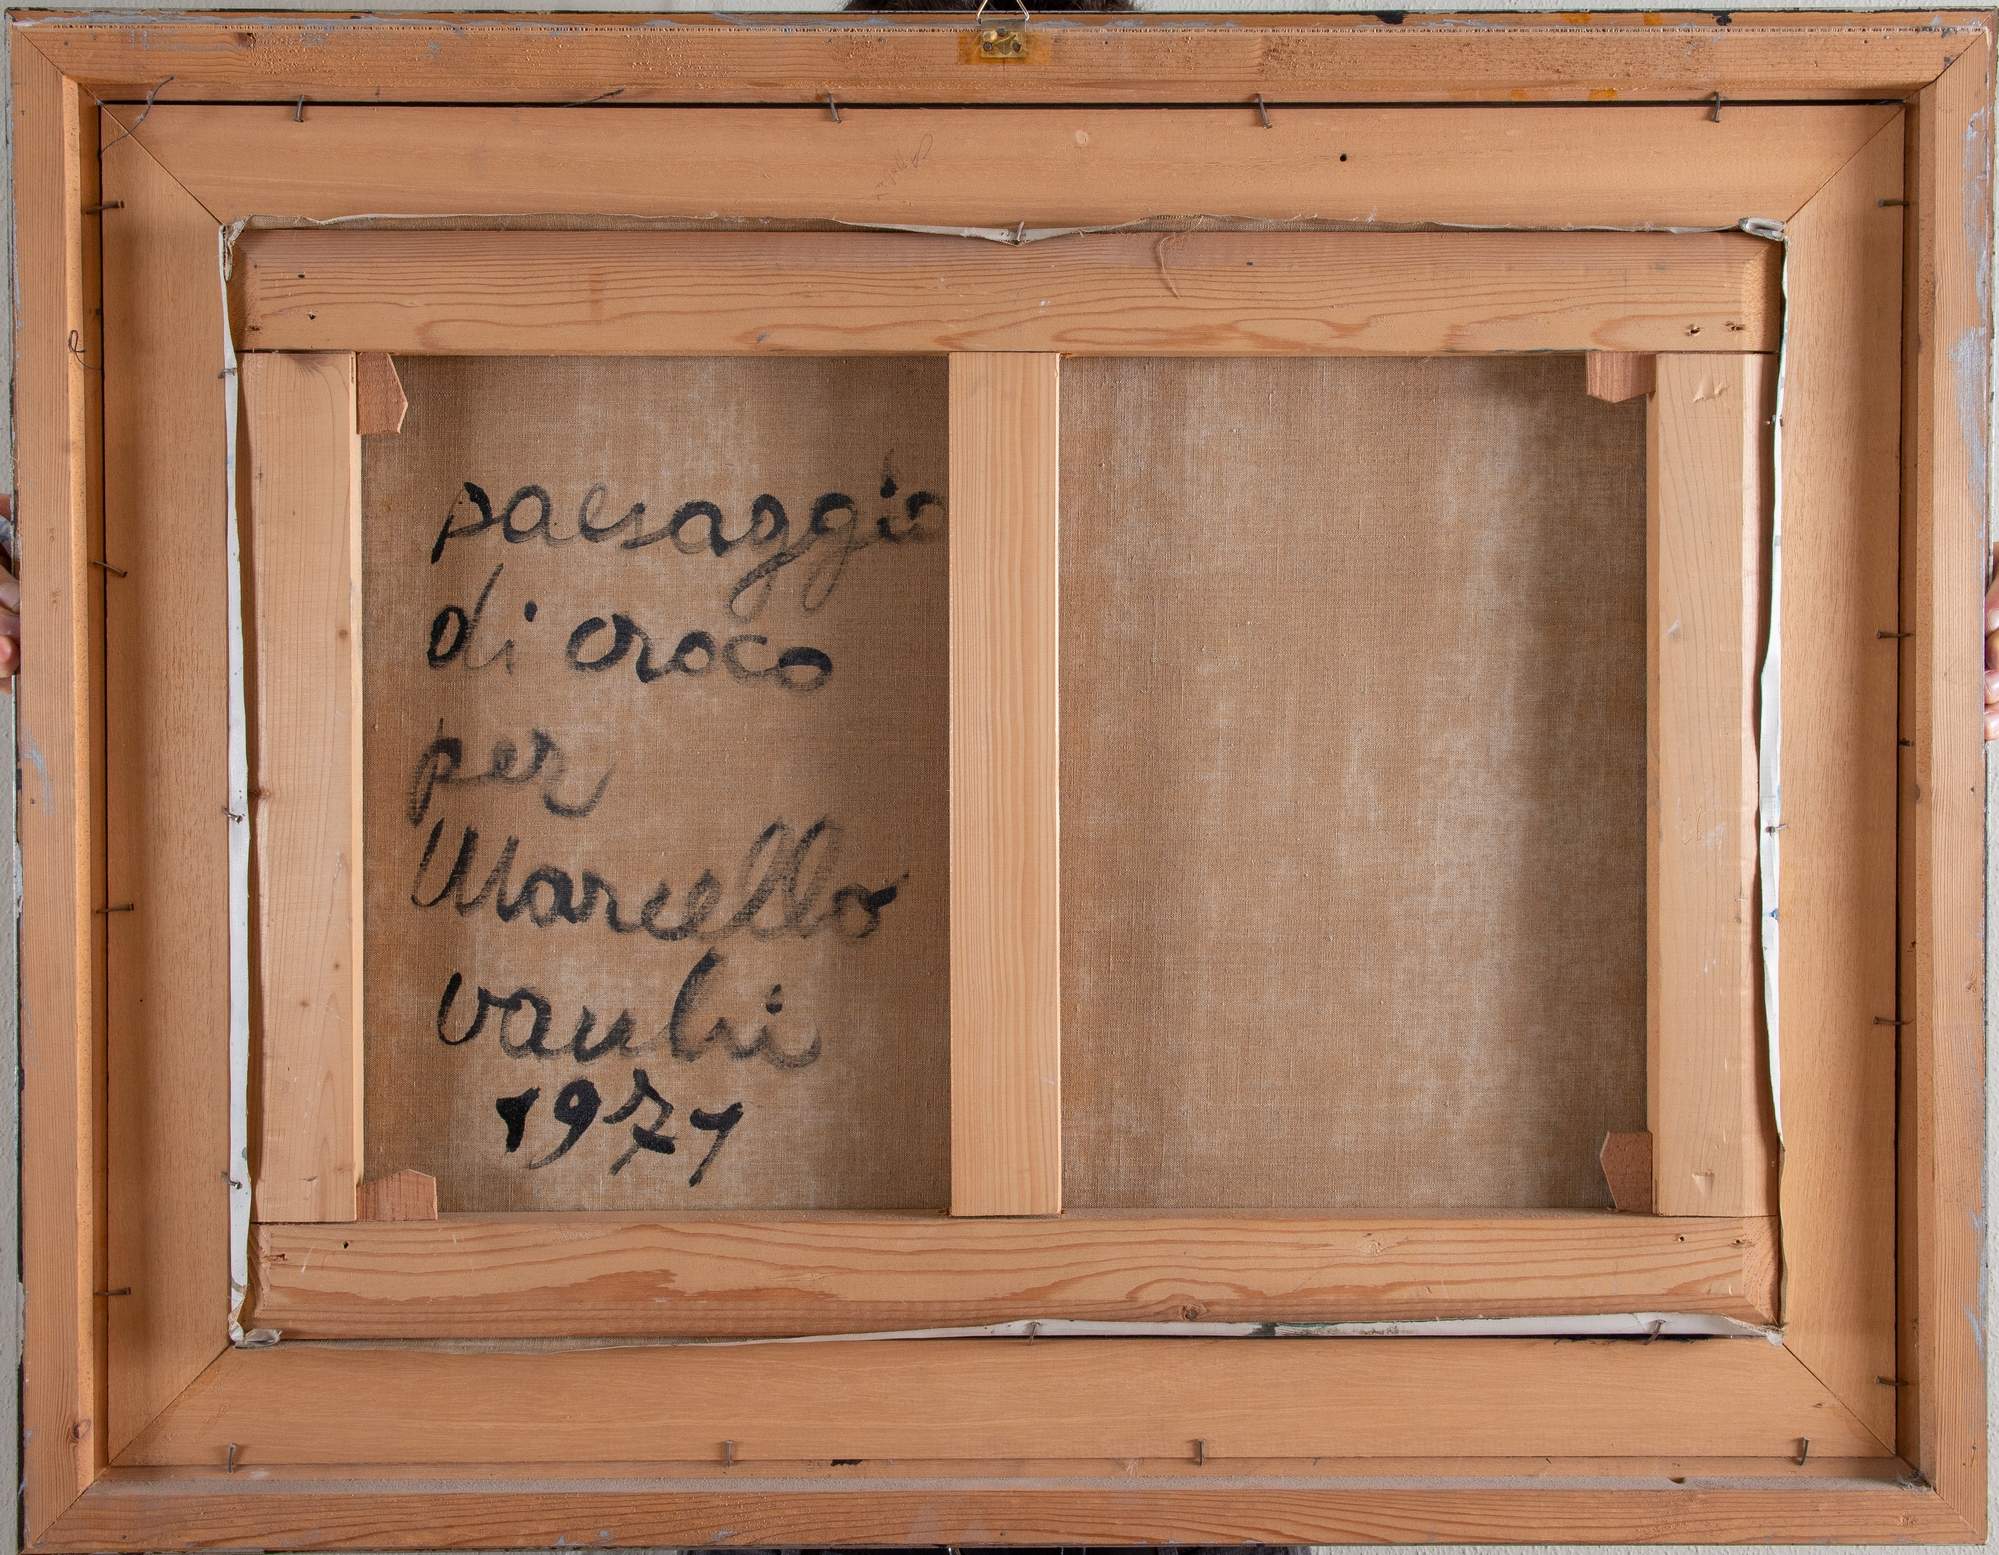 paesaggio
di oroco
per
Marcello
vanhi
1971